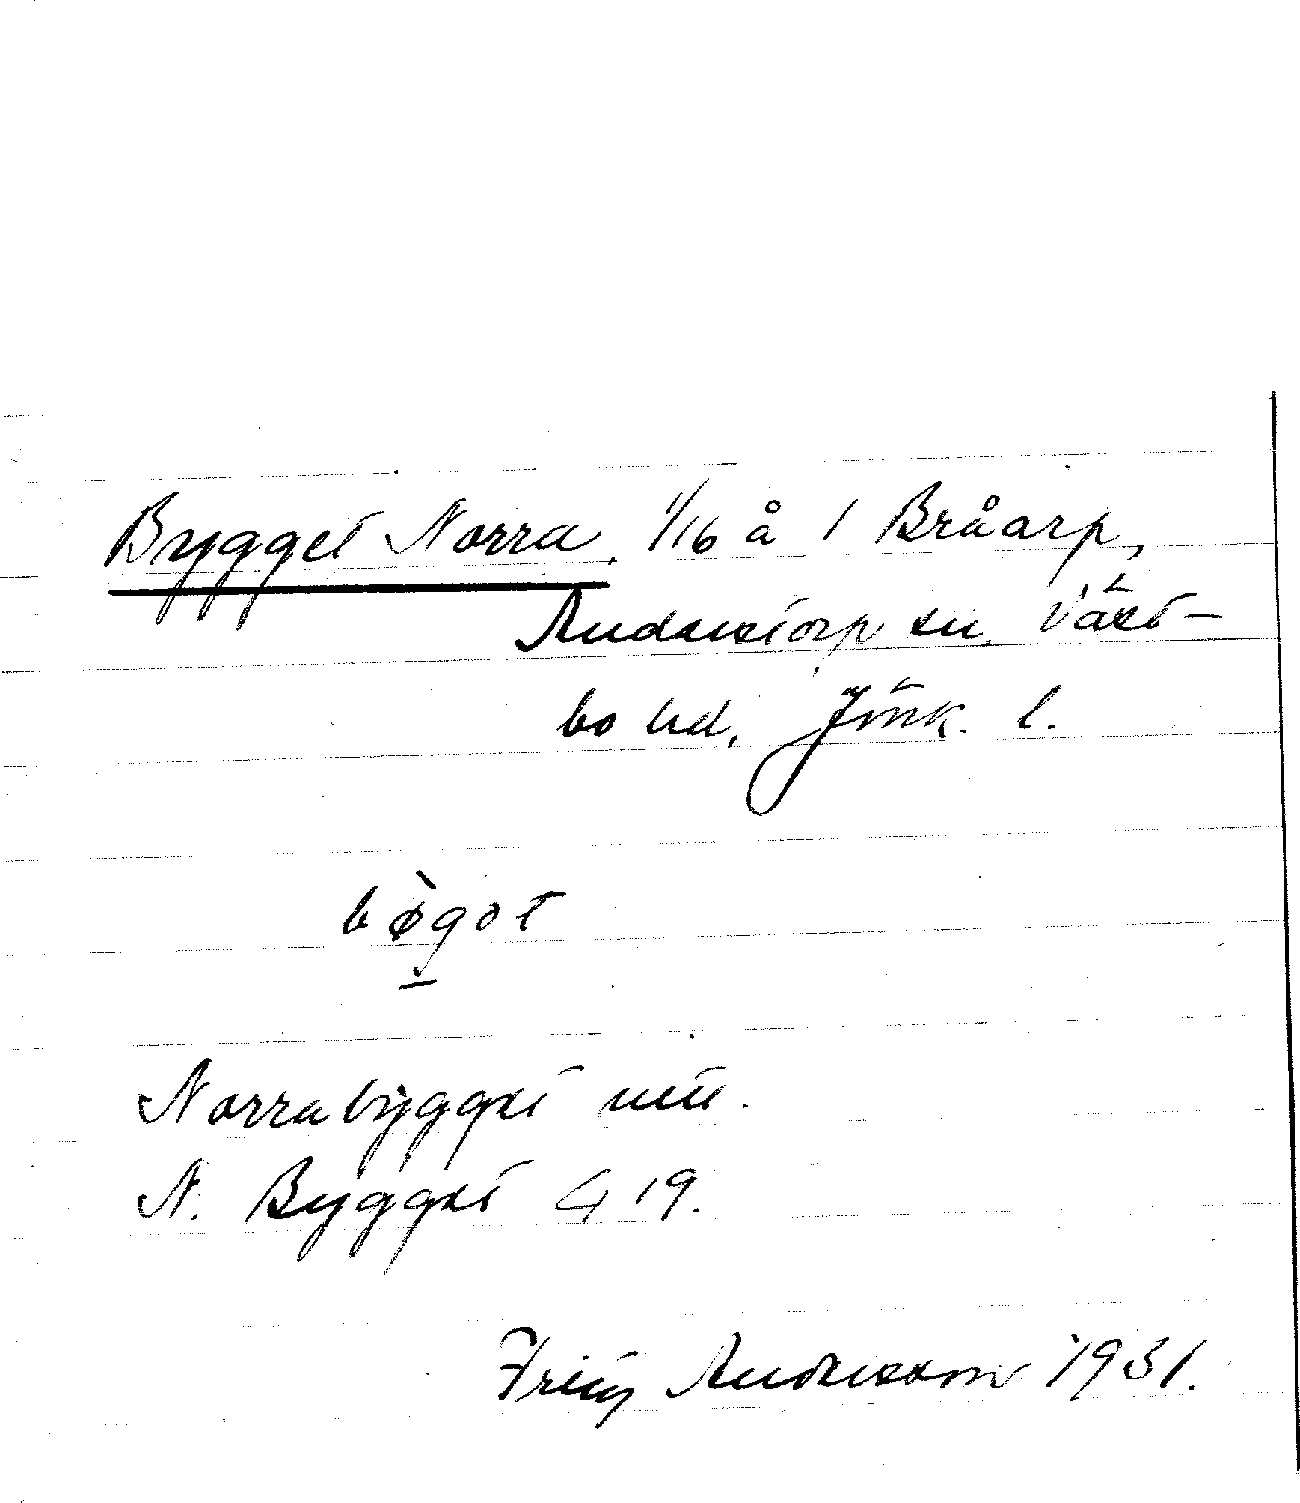 Bygget Norra. 1/16 å 1 Bråarp,
Anderstorp sn, Väst-
bo hd, Jönk. l.
bø̀got
Norrabygget utt.
N. Bygget G 19.
Fritz Andersson 1931.